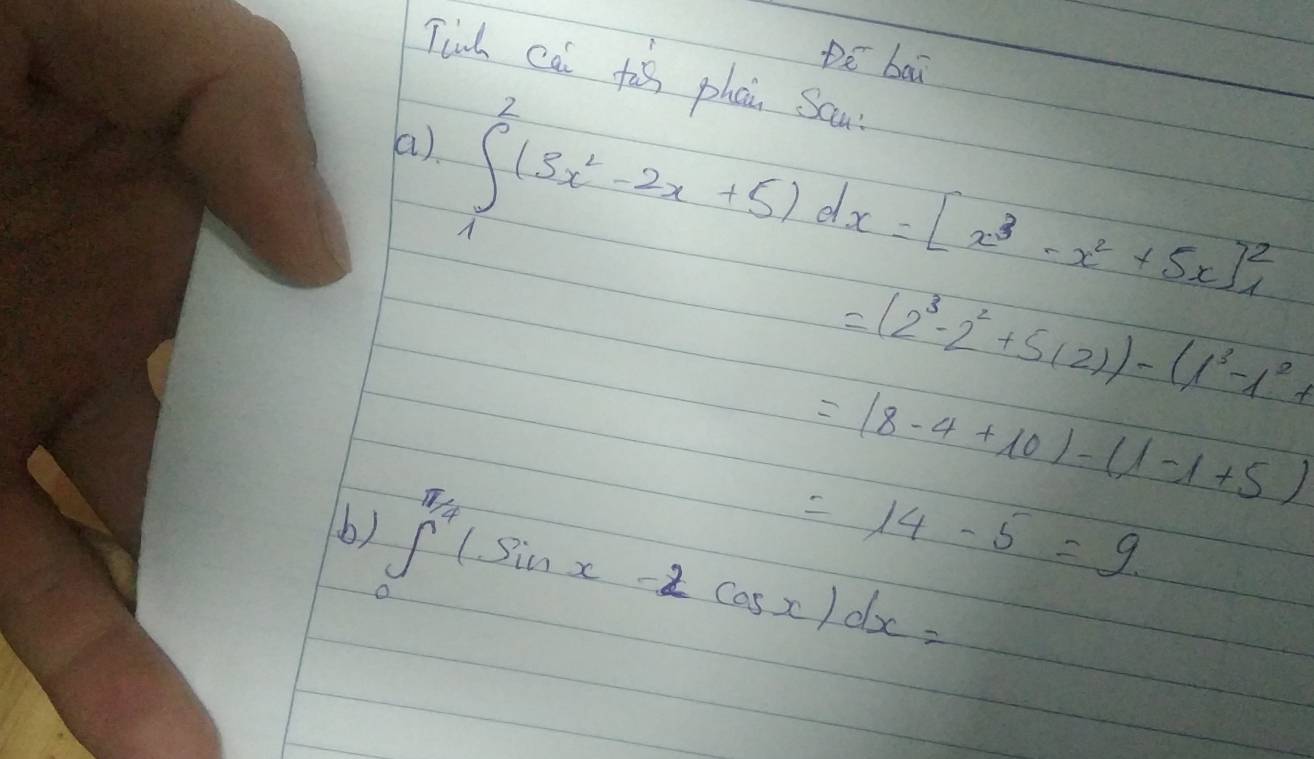 Đề bài
Tính các tích phân sau:
a). ∫₁² (3x² - 2x + 5) dx = [x³ - x² + 5x]₁²
= (2³ - 2² + 5(2)) - (1³ - 1² +
= (8 - 4 + 10) - (1 - 1 + 5)
= 14 - 5 = 9.
b) ∫₀^π/4 (Sin x - 2 cos x) dx =